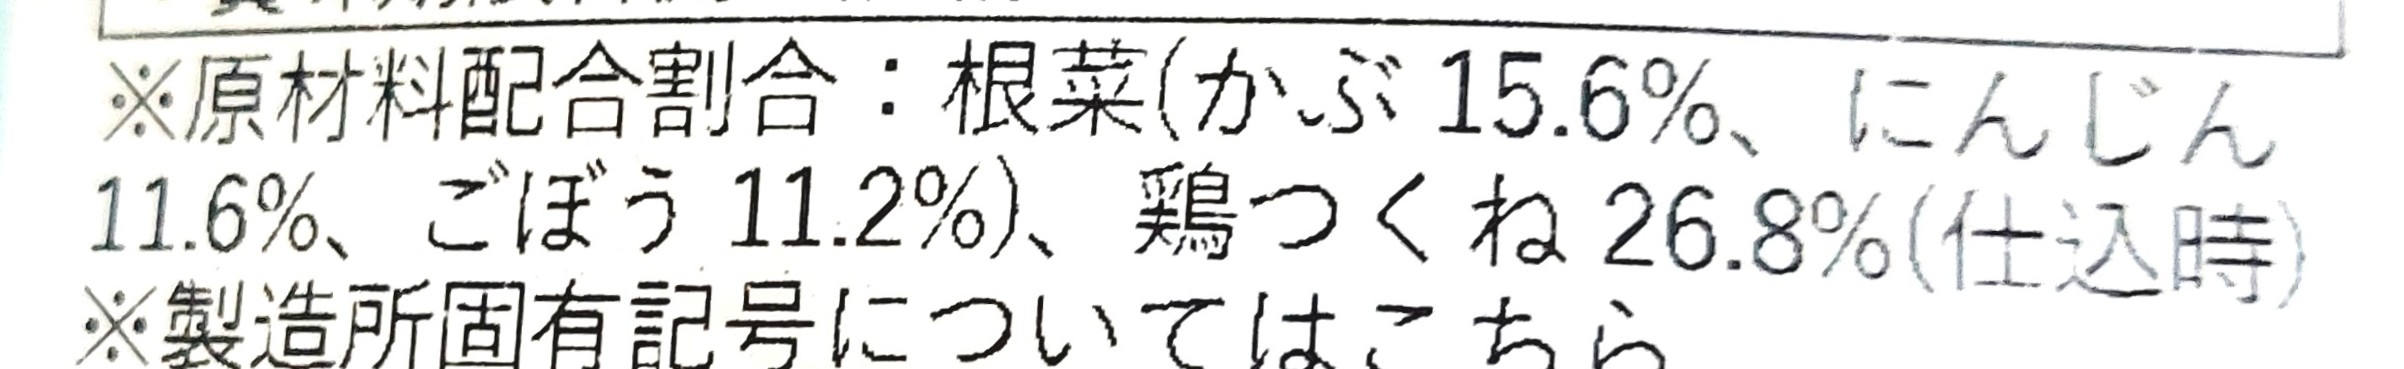 ※原材料配合割合：根菜(かぶ 15.6%、にんじん
11.6%、ごぼう 11.2%)、鶏つくね 26.8%(仕込時)
※製造所固有記号についてはこちら